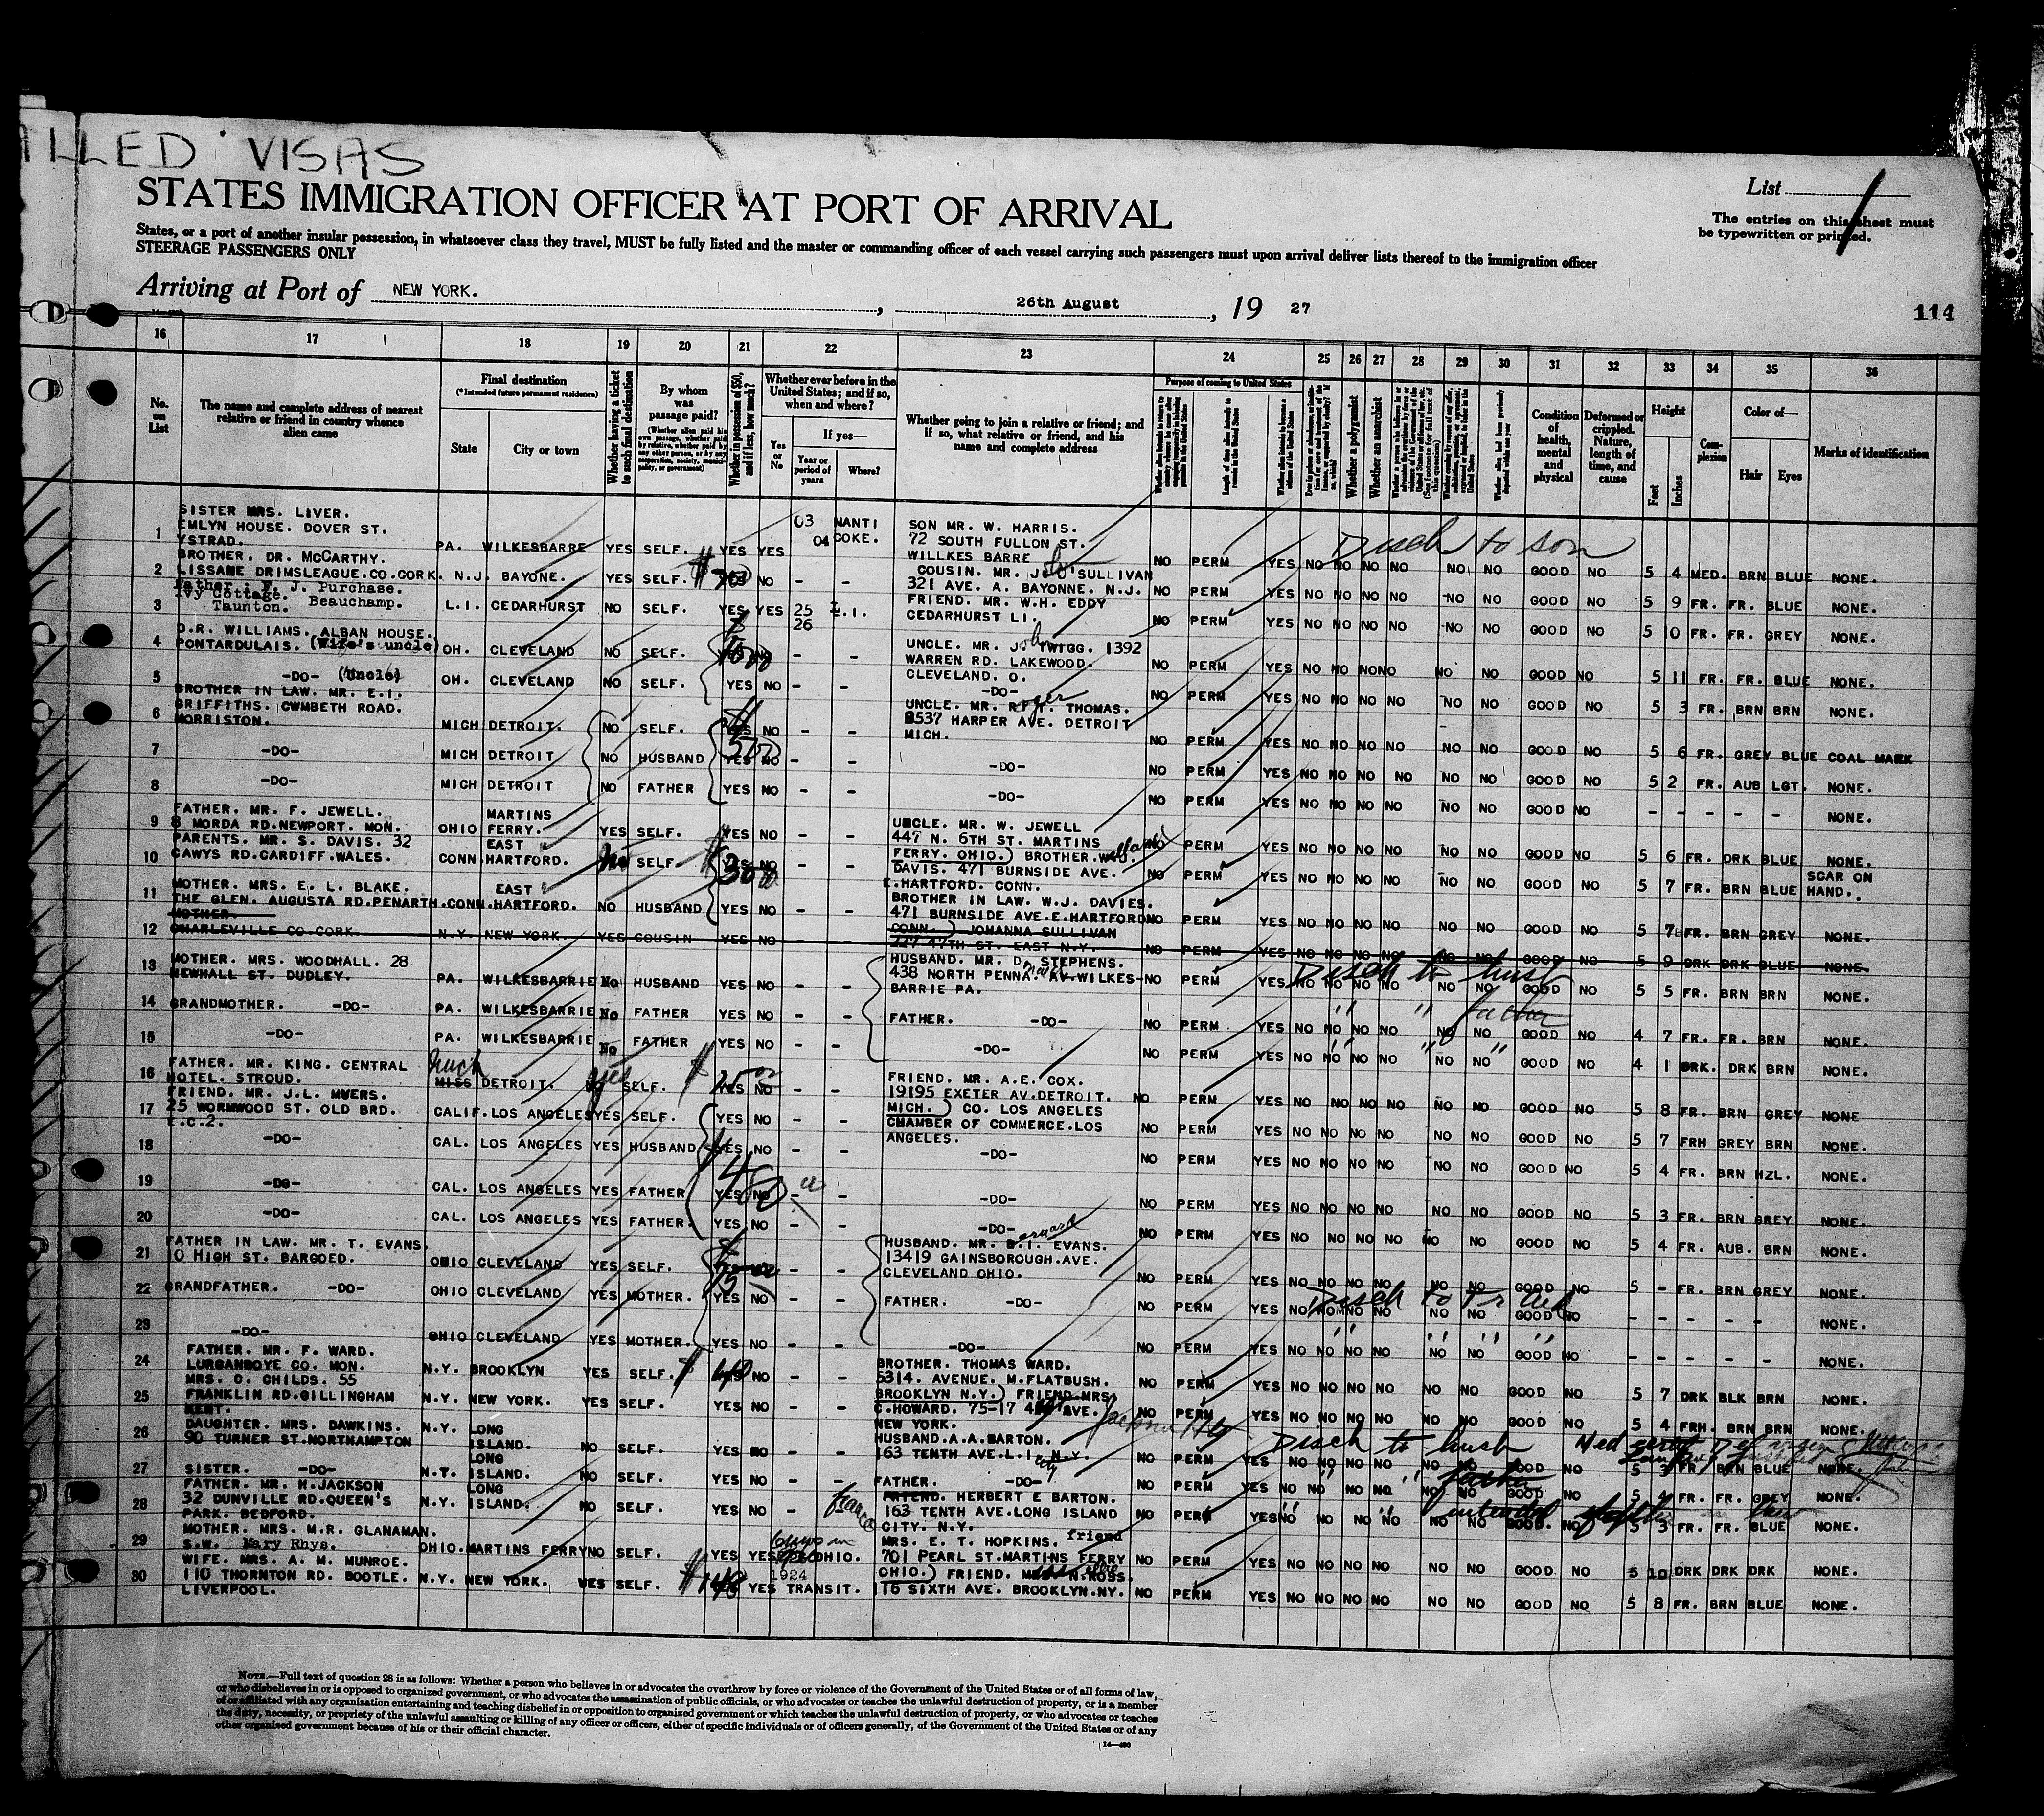 ALLED VISAS
STATES IMMIGRATION OFFICER AT PORT OF ARRIVAL
List
The entries on this sheet must
be typewritten or printed.
States, or a port of another insular possession, in whatsoever class they travel, MUST be fully listed and the master or commanding officer of each vessel carrying such passengers must upon arrival deliver lists thereof to the immigration officer
STEERAGE PASSENGERS ONLY
Arriving at Port of NEW YORK. , 26th August , 19 27
114
16 17 18 19 20 21 22 23 24 25 26 27 28 29 30 31 32 33 34 35 36
No. on List
The name and complete address of nearest relative or friend in country whence alien came
Final destination
(*Intended future permanent residence)
State
City or town
Whether having a ticket to such final destination
By whom was passage paid?
(Whether alien paid his own passage, whether paid by relative, whether paid by any other person, or by any corporation, society, municipality, or government)
Whether in possession of $50, and if less, how much?
Whether ever before in the United States; and if so, when and where?
Yes or No
If yes—
Year or period of years
Where?
Whether going to join a relative or friend; and if so, what relative or friend, and his name and complete address
Purpose of coming to United States
Length of time alien intends to remain in the United States
Whether a polygamist
Whether an anarchist
Condition of health, mental and physical
Deformed or crippled. Nature, length of time, and cause
Height
Feet
Inches
Complexion
Color of—
Hair
Eyes
Marks of identification
1 SISTER MRS. LIVER. EMLYN HOUSE. DOVER ST. YSTRAD. PA. WILKESBARRE YES SELF. YES YES 03 04 NANTI COKE. SON MR. W. HARRIS. 72 SOUTH FULLON ST. WILLKES BARRE NO PERM YES NO NO NO NO NO NO GOOD NO 5 4 MED. BRN BLUE NONE.
Disch to son
2 BROTHER. DR. McCARTHY. LISSANE DRIMSLEAGUE.CO.CORK. N.J. BAYONE. YES SELF. NO - - COUSIN. MR. J O'SULLIVAN 321 AVE. A. BAYONNE. N.J. NO PERM YES NO NO NO NO NO NO GOOD NO 5 9 FR. FR. BLUE NONE.
3 Father. J. Purchase. Ivy Cottage. Beauchamp. Taunton. L.I. CEDARHURST NO SELF. YES YES 25 26 L.I. FRIEND. MR. W.H. EDDY CEDARHURST LI. NO PERM YES NO NO NO NO NO NO GOOD NO 5 10 FR. FR. GREY NONE.
4 D.R. WILLIAMS. ALBAN HOUSE. PONTARDULAIS. (Wife's uncle) OH. CLEVELAND NO SELF. - - UNCLE. MR. John TWIGG. 1392 WARREN RD. LAKEWOOD. CLEVELAND. O. NO PERM YES NO NO NO NO NO NO GOOD NO 5 11 FR. FR. BLUE NONE.
5 -DO- (Uncle) OH. CLEVELAND NO SELF. YES NO - - -DO- NO PERM YES NO NO NO NO NO NO GOOD NO 5 3 FR. BRN BRN NONE.
6 BROTHER IN LAW. MR. E.I. GRIFFITHS. CWMBETH ROAD. MORRISTON. MICH DETROIT. NO SELF. YES NO - - UNCLE. MR. Roger THOMAS. 8537 HARPER AVE. DETROIT MICH. NO PERM YES NO NO NO NO NO NO GOOD NO 5 6 FR. GREY BLUE COAL MARK
7 -DO- MICH DETROIT NO HUSBAND YES NO - - -DO- NO PERM YES NO NO NO NO NO NO GOOD NO 5 2 FR. AUB LGT. NONE.
8 -DO- MICH DETROIT NO FATHER YES NO - - -DO- NO PERM YES NO NO NO NO NO NO GOOD NO - - - - - NONE.
9 FATHER. MR. F. JEWELL. 8 MORDA RD.NEWPORT. MON. OHIO MARTINS FERRY. YES SELF. YES NO - - UNCLE. MR. W. JEWELL 447 N. 6TH ST. MARTINS FERRY. OHIO.) NO PERM YES NO NO NO NO NO NO GOOD NO 5 6 FR. DRK BLUE NONE.
10 PARENTS. MR. S. DAVIS. 32 CAWYS RD.CARDIFF.WALES. CONN. EAST HARTFORD. No SELF YES NO - - BROTHER. DAVIS. 471 BURNSIDE AVE. E.HARTFORD. CONN. NO PERM YES NO NO NO NO NO NO GOOD NO 5 7 FR. BRN BLUE SCAR ON HAND.
11 MOTHER. MRS. E. L. BLAKE. THE GLEN. AUGUSTA RD.PENARTH. CONN. EAST HARTFORD. NO HUSBAND YES NO - - BROTHER IN LAW. W.J. DAVIES. 471 BURNSIDE AVE.E.HARTFORD CONN.) NO PERM YES NO NO NO NO NO NO GOOD NO 5 7 FR. BRN GREY NONE.
12 MOTHER. CHARLEVILLE CO.CORK. N.Y. NEW YORK. YES COUSIN YES NO JOHANNA SULLIVAN 227 47TH ST. EAST N.Y. NO PERM YES NO NO NO NO NO NO GOOD NO 5 9 DRK DRK BLUE NONE.
13 MOTHER. MRS. WOODHALL. 28 NEWHALL ST. DUDLEY. PA. WILKESBARRIE No HUSBAND YES NO - - HUSBAND. MR. D. STEPHENS. 438 NORTH PENNA. AV.WILKES-BARRIE PA. NO PERM YES NO NO NO NO NO NO GOOD NO 5 5 FR. BRN BRN NONE.
Disch to husb
14 GRANDMOTHER. -DO- PA. WILKESBARRIE No FATHER YES NO - - FATHER. -DO- NO PERM YES NO NO NO NO NO NO GOOD NO 4 7 FR. FR. BRN NONE.
" " father
15 -DO- PA. WILKESBARRIE No FATHER YES NO - - -DO- NO PERM YES NO NO NO NO NO NO GOOD NO 4 1 DRK. DRK BRN NONE.
16 FATHER. MR. KING. CENTRAL HOTEL. STROUD. MISS Mich DETROIT. yes SELF. YES NO - - FRIEND. MR. A.E. COX. 19195 EXETER AV.DETROIT. MICH.) NO PERM YES NO NO NO NO NO NO GOOD NO 5 8 FR. BRN GREY NONE
17 FRIEND. MR. J.L. MYERS. 25 WORMWOOD ST. OLD BRD. E.C.2. CALIF. LOS ANGELES YES SELF. YES NO - - CO. LOS ANGELES CHAMBER OF COMMERCE.LOS ANGELES. NO PERM YES NO NO NO NO NO NO GOOD NO 5 7 FRH GREY BRN NONE.
18 -DO- CAL. LOS ANGELES YES HUSBAND YES NO - - -DO- NO PERM YES NO NO NO NO NO NO GOOD NO 5 4 FR. BRN HZL. NONE.
19 -DO- CAL. LOS ANGELES YES FATHER YES NO - - -DO- NO PERM YES NO NO NO NO NO NO GOOD NO 5 3 FR. BRN GREY NONE.
20 -DO- CAL. LOS ANGELES YES FATHER. YES NO - - -DO- NO PERM YES NO NO NO NO NO NO GOOD NO 5 4 FR. AUB. BRN NONE.
21 FATHER IN LAW. MR. T. EVANS. 10 HIGH ST. BARGOED. OHIO CLEVELAND YES SELF. - - HUSBAND. MR. B.I. EVANS. 13419 GAINSBOROUGH.AVE. CLEVELAND OHIO. NO PERM YES NO NO NO NO NO NO GOOD NO 5 - FR. BRN GREY NONE.
22 GRANDFATHER. -DO- OHIO CLEVELAND YES MOTHER. YES NO - - FATHER. -DO- NO PERM YES NO NO NO NO NO NO GOOD NO - - - - - NONE.
23 -DO- OHIO CLEVELAND YES MOTHER. YES NO - - -DO- NO PERM YES NO NO NO NO NO NO GOOD NO - - - - - NONE.
24 FATHER. MR. F. WARD. LURGANBOYE CO. MON. N.Y. BROOKLYN YES SELF. NO - - BROTHER. THOMAS WARD. 5314. AVENUE. M.FLATBUSH. BROOKLYN N.Y.) NO PERM YES NO NO NO NO NO NO GOOD NO 5 7 DRK BLK BRN NONE.
25 MRS. C. CHILDS. 55 FRANKLIN RD.GILLINGHAM KENT. N.Y. NEW YORK. YES SELF. YES NO - - FRIEND.MRS. C.HOWARD. 75-17 AVE. NEW YORK. NO PERM YES NO NO NO NO NO NO GOOD NO 5 4 FRH. BRN BRN NONE.
26 DAUGHTER. MRS. DAWKINS. 90 TURNER ST.NORTHAMPTON N.Y. LONG ISLAND. NO SELF. YES NO - - HUSBAND.A.A.BARTON. 163 TENTH AVE.L.I. N.Y. NO PERM YES NO NO NO NO NO NO GOOD NO 5 3 FR. BRN BLUE NONE.
Disch to husb
27 SISTER. -DO- N.Y. LONG ISLAND. NO SELF. YES NO - - FATHER. -DO- NO PERM YES NO NO NO NO NO NO GOOD NO 5 4 FR. FR. GREY NONE.
28 FATHER. MR. H.JACKSON 32 DUNVILLE RD.QUEEN'S PARK. BEDFORD. N.Y. LONG ISLAND. NO SELF. YES NO - fiance FRIEND. HERBERT E BARTON. 163 TENTH AVE.LONG ISLAND CITY. N.Y. NO PERM YES NO NO NO NO GOOD. NO 5 3 FR. FR. BLUE NONE.
29 MOTHER. MRS. M.R. GLANAMAN. S.W. Mary Rhys. OHIO. MARTINS FERRY NO SELF. YES YES OHIO. MRS. E. T. HOPKINS. friend 701 PEARL ST.MARTINS FERRY OHIO.) NO PERM YES NO NO NO NO NO NO GOOD NO 5 10 DRK DRK DRK NONE.
30 WIFE. MRS. A. M. MUNROE. 110 THORNTON RD. BOOTLE. LIVERPOOL. N.Y. NEW YORK. YES SELF. YES 1924 TRANSIT. FRIEND. N.ROSS. 176 SIXTH AVE. BROOKLYN.NY. NO PERM YES NO NO NO NO NO NO GOOD NO 5 8 FR. BRN BLUE NONE.
NOTE.—Full text of question 28 is as follows: Whether a person who believes in or advocates the overthrow by force or violence of the Government of the United States or of all forms of law,
or who disbelieves in or is opposed to organized government, or who advocates the assassination of public officials, or who advocates or teaches the unlawful destruction of property, or is a member
of or affiliated with any organization entertaining and teaching disbelief in or opposition to organized government or which teaches the unlawful destruction of property, or who advocates or teaches
the duty, necessity, or propriety of the unlawful assaulting or killing of any officer or officers, either of specific individuals or of officers generally, of the Government of the United States or of any
other organized government because of his or their official character.
14—480